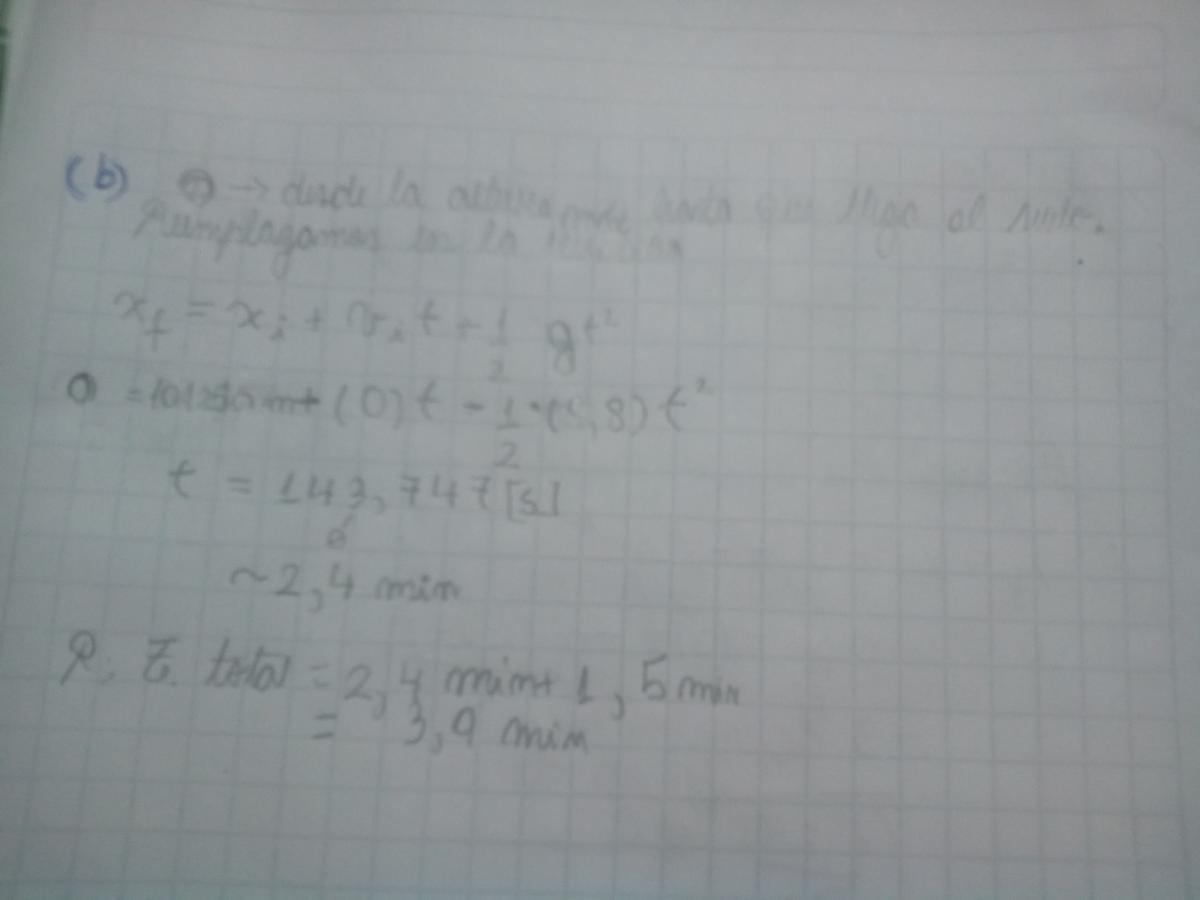 (b) → desde la altura hasta que llega al
Remplazamos en la
x_f = x_i + v_i t + 1/2 g t²
0 = m + (0) t - 1/2 · (9,8) t²
t = 143,747 [s]
é
~ 2,4 min
R. t. total = 2,4 min + 1,5 min
= 3,9 min